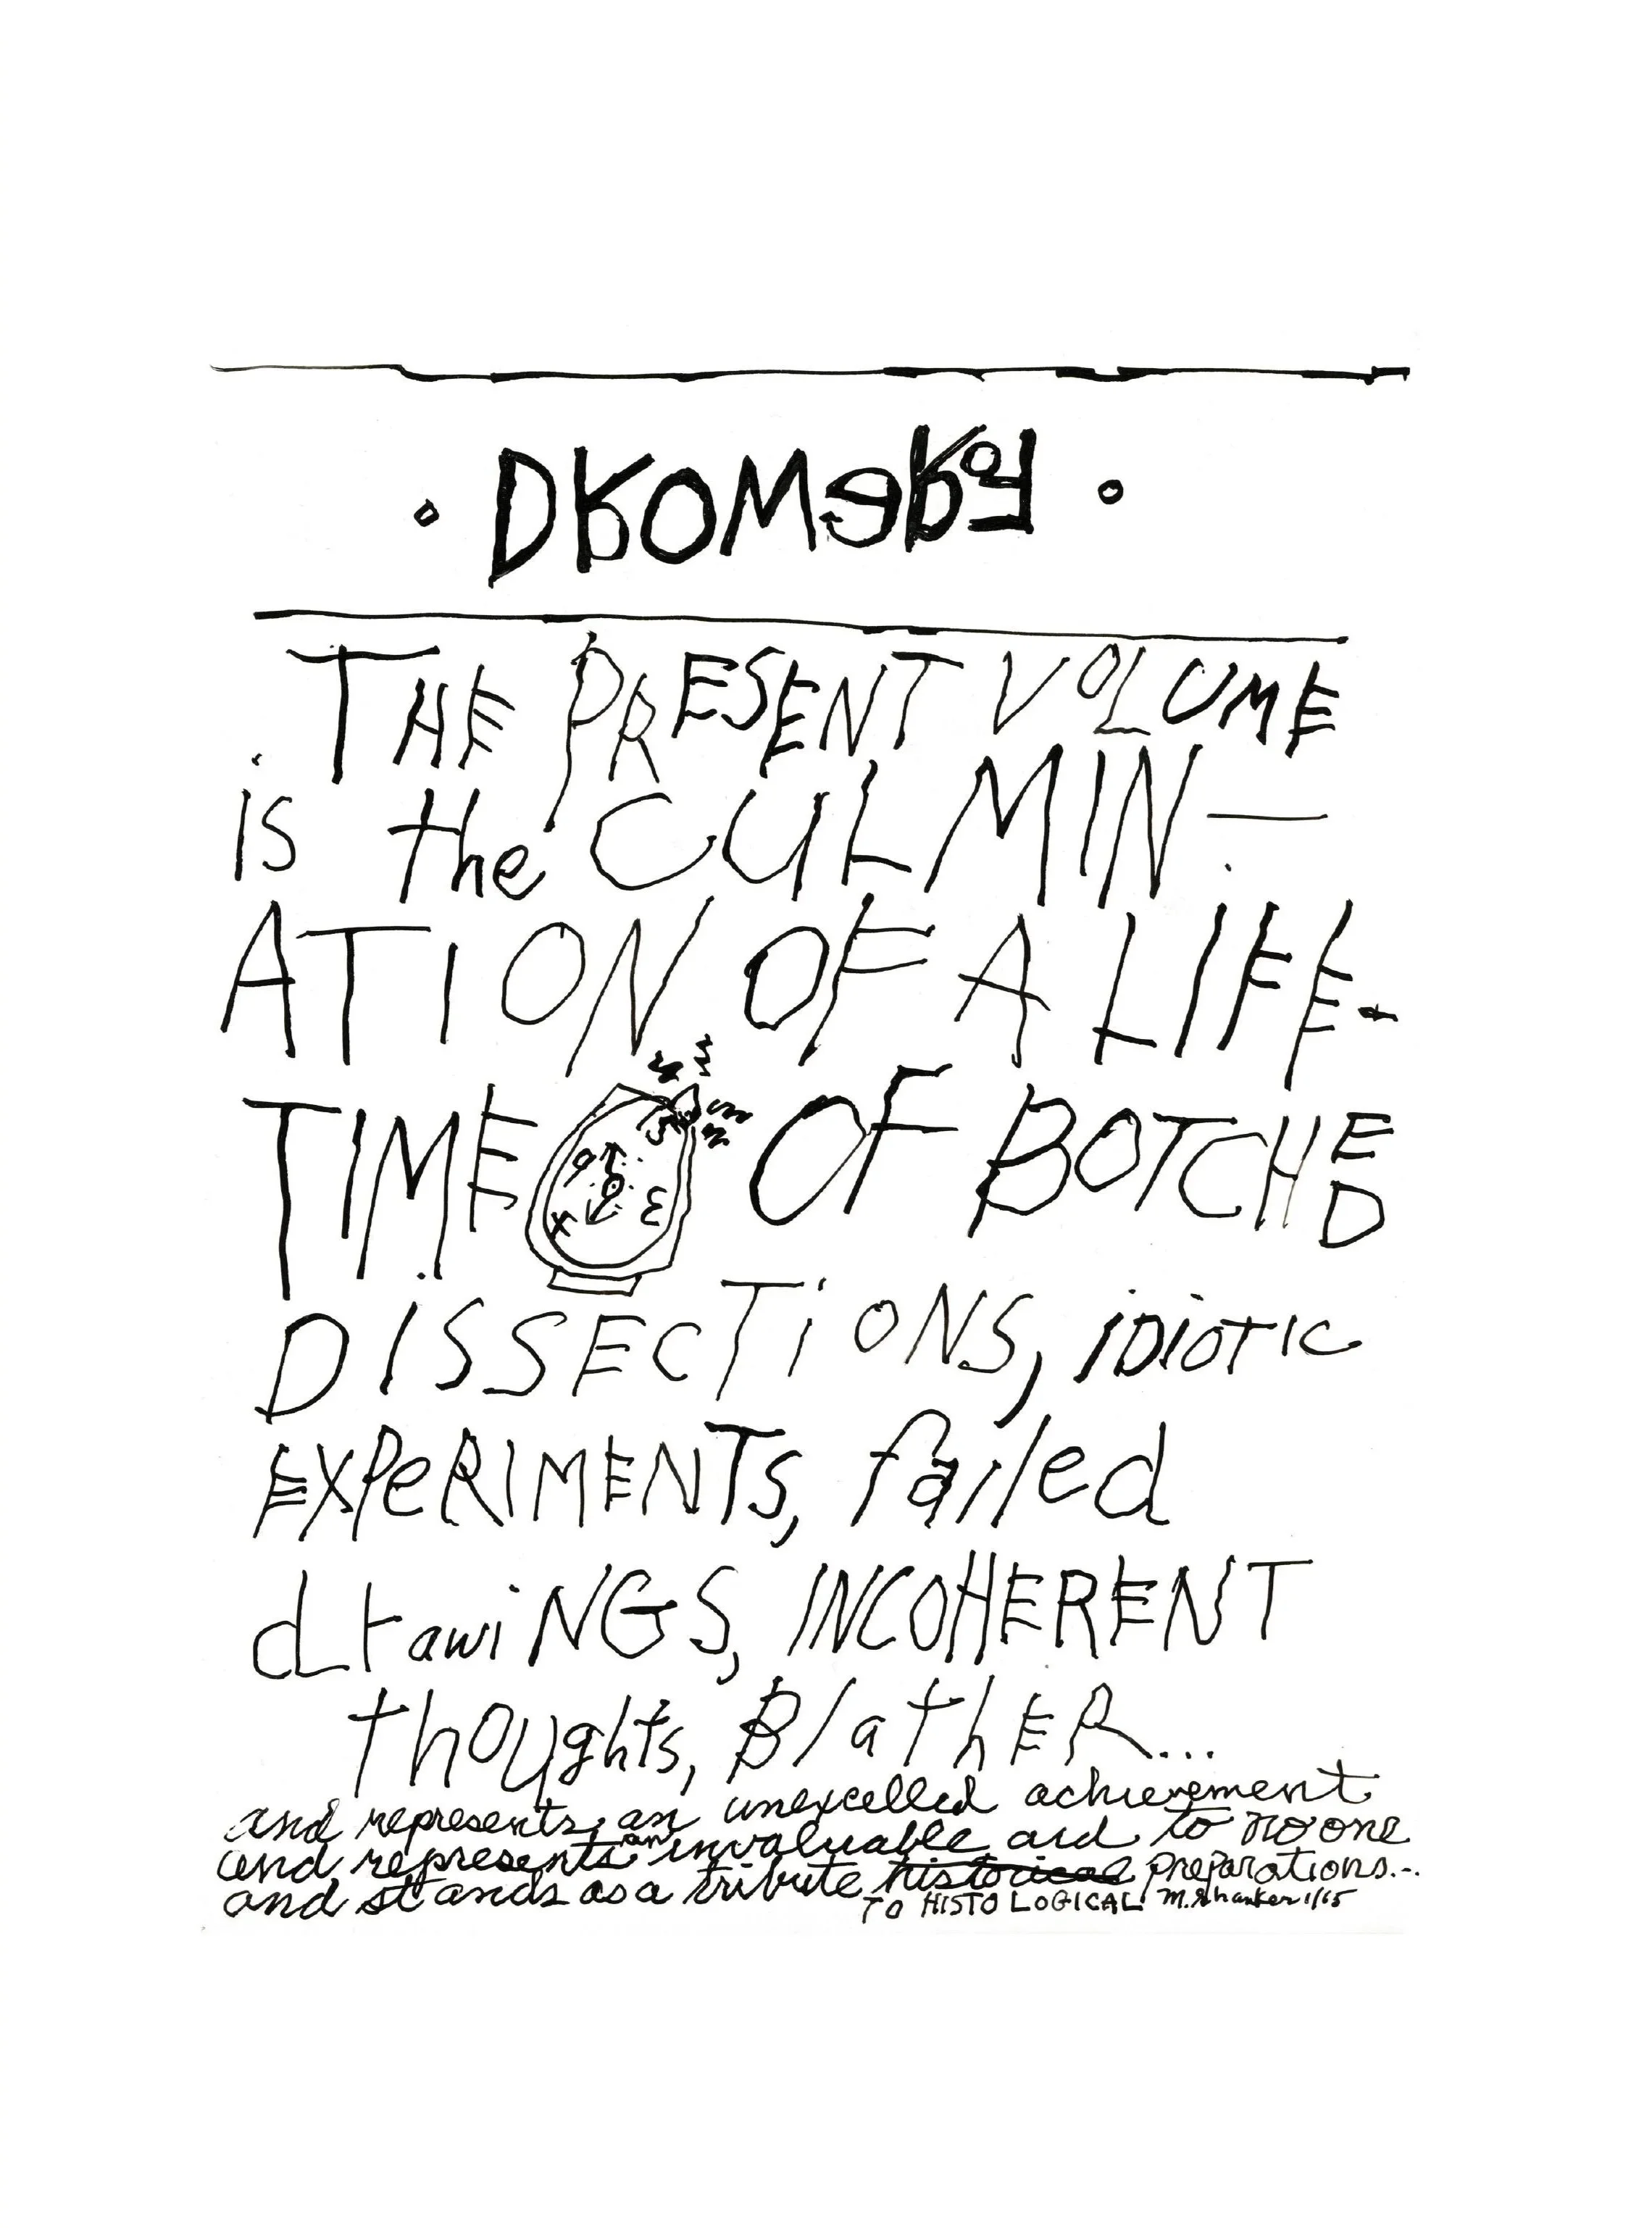 FOREWORD
THE PRESENT VOLUME
is the CULMIN-
ATION OF A LIFE-
TIME OF BOTCHED
DISSECTiONS, iDiOTIC
EXPeRIMENTS, failed
drawiNGS, INCOHERENT
thOUghts, BlathER...
and represents an unexcelled achievement
and represents an invaluable aid to no one
and stands as a tribute historical preparations...
TO HISTOLOGICAL